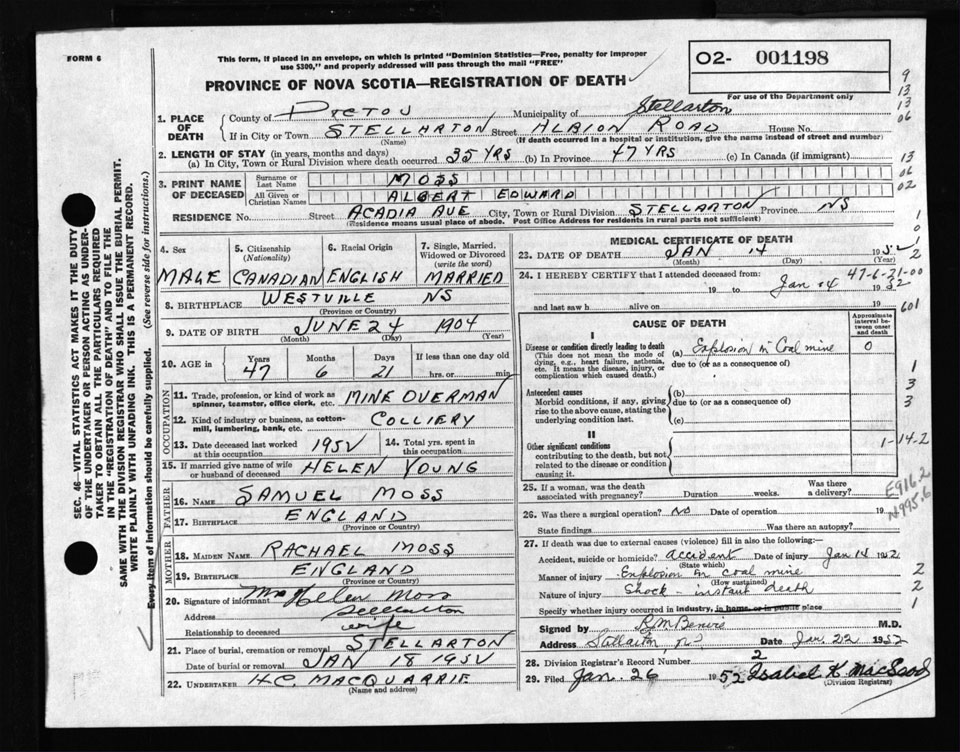 FORM 6
This form, if placed in an envelope, on which is printed "Dominion Statistics—Free, penalty for improper
use $300," and properly addressed will pass through the mail "FREE"
PROVINCE OF NOVA SCOTIA—REGISTRATION OF DEATH
02- 001198
For use of the Department only
9
13
13
06
1. PLACE OF DEATH
County of PICTOU Municipality of Stellarton
If in City or Town STELLARTON Street ALBION ROAD House No.
(Name) (If death occurred in a hospital or institution, give the name instead of street and number)
2. LENGTH OF STAY (in years, months and days)
(a) In City, Town or Rural Division where death occurred 35 YRS (b) In Province 47 YRS (c) In Canada (if immigrant)
13
06
02
3. PRINT NAME OF DECEASED
Surname or Last Name MOSS
All Given or Christian Names ALBERT EDWARD
RESIDENCE No. Street ACADIA AVE City, Town or Rural Division STELLARTON Province NS
(Residence means usual place of abode. Post Office Address for residents in rural parts not sufficient)
1
0
1
2
4. Sex MALE
5. Citizenship (Nationality) CANADIAN
6. Racial Origin ENGLISH
7. Single, Married, Widowed or Divorced (write the word) MARRIED
8. BIRTHPLACE WESTVILLE NS
(Province or Country)
9. DATE OF BIRTH JUNE 24 1904
(Month) (Day) (Year)
10. AGE in Years 47 Months 6 Days 21 If less than one day old
hrs. or min.
OCCUPATION
11. Trade, profession, or kind of work as spinner, teamster, office clerk, etc. MINE OVERMAN
12. Kind of industry or business, as cotton-mill, lumbering, bank, etc. COLLIERY
13. Date deceased last worked at this occupation 1952
14. Total yrs. spent in this occupation
15. If married give name of wife or husband of deceased HELEN YOUNG
FATHER
16. NAME SAMUEL MOSS
17. BIRTHPLACE ENGLAND
(Province or Country)
MOTHER
18. MAIDEN NAME RACHAEL MOSS
19. BIRTHPLACE ENGLAND
(Province or Country)
20. Signature of informant Mrs Helen Moss
Address Stellarton
Relationship to deceased wife
21. Place of burial, cremation or removal STELLARTON
Date of burial or removal JAN 18 1952
22. UNDERTAKER H.C. MACQUARRIE
(Name and address)
MEDICAL CERTIFICATE OF DEATH
23. DATE OF DEATH JAN 14 1952
(Month) (Day) (Year)
24. I HEREBY CERTIFY that I attended deceased from:
47-6-21-00
19 to Jan 14 1952
and last saw h alive on 19
601
CAUSE OF DEATH
Approximate interval between onset and death
I
Disease or condition directly leading to death (a) Explosion in Coal mine 0
(This does not mean the mode of dying, e.g., heart failure, asthenia, etc. It means the disease, injury, or complication which caused death.)
due to (or as a consequence of)
1
3
3
Antecedent causes (b)
Morbid conditions, if any, giving rise to the above cause, stating the underlying condition last.
due to (or as a consequence of)
(c)
II
Other significant conditions
contributing to the death, but not related to the disease or condition causing it.
1-14-2
25. If a woman, was the death associated with pregnancy? Duration weeks. Was there a delivery?
E916.2
N995.6
26. Was there a surgical operation? No Date of operation 19
State findings Was there an autopsy?
27. If death was due to external causes (violence) fill in also the following:
Accident, suicide or homicide? accident Date of injury Jan 14 1952
(State which)
Manner of injury Explosion in coal mine 2
(How sustained)
Nature of injury Shock - instant death 2
Specify whether injury occurred in industry, in home, or in public place 1
Signed by M.D.
Address Stellarton, Date Jan. 22 1952
28. Division Registrar's Record Number 2
29. Filed Jan. 26 1952 Isabel K. MacLeod
(Division Registrar)
SEC. 46—VITAL STATISTICS ACT MAKES IT THE DUTY
OF THE UNDERTAKER OR PERSON ACTING AS UNDER-
TAKER TO OBTAIN ALL THE PARTICULARS REQUIRED
IN THE "REGISTRATION OF DEATH" AND TO FILE THE
SAME WITH THE DIVISION REGISTRAR WHO SHALL ISSUE THE BURIAL PERMIT.
WRITE PLAINLY WITH UNFADING INK. THIS IS A PERMANENT RECORD.
Every item of information should be carefully supplied. (See reverse side for instructions.)